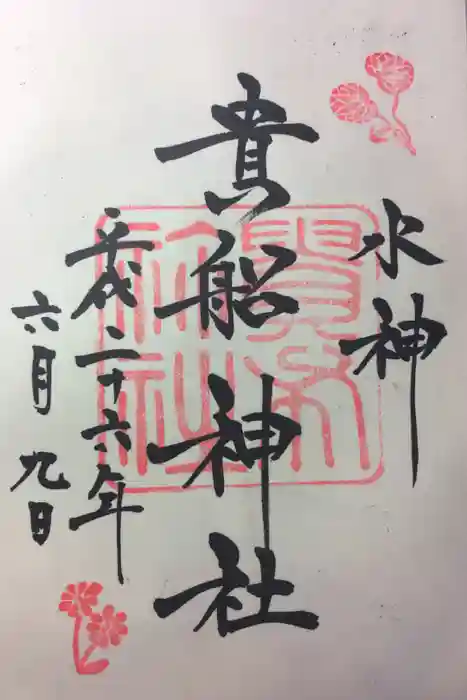 水神
貴船神社
平成二十六年
六月九日